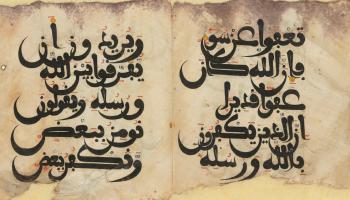 تعفوا عن سو
فإن الله كان
عفوا قديرا
إن الذين يكفرون
بالله ورسله
ويريدون أن
يفرقوا بين الله
ورسله ويقولون
نومن ببعض
ونكفر ببعض